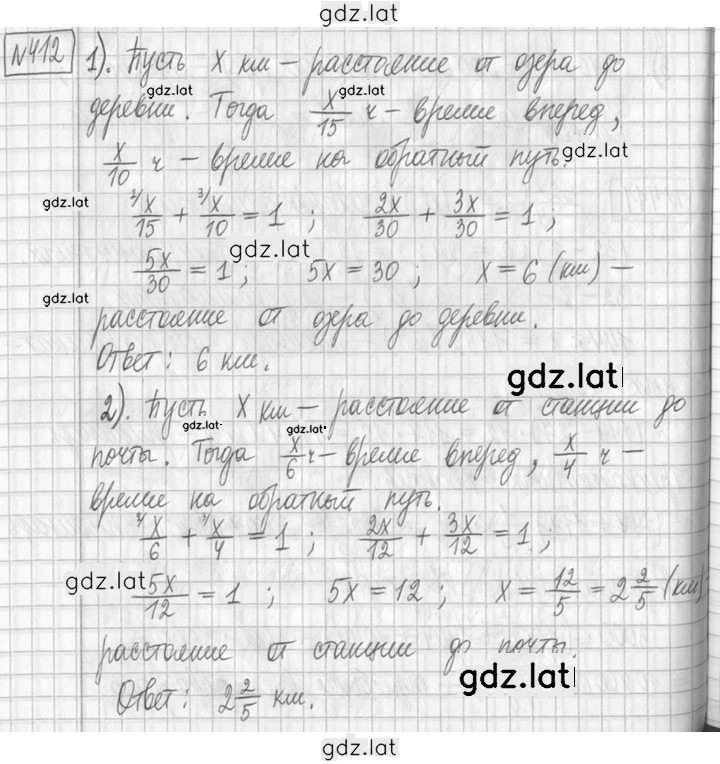 gdz.lat
№412 1). Пусть х км – расстояние от озера до
gdz.lat gdz.lat
деревни. Тогда x/15 ч – время вперед,
x/10 ч – время на обратный путь. gdz.lat
gdz.lat ²⁄x/15 + ³⁄x/10 = 1 ; 2x/30 + 3x/30 = 1 ;
gdz.lat
5x/30 = 1 ; 5x = 30 ; x = 6 (км) –
gdz.lat
расстояние от озера до деревни.
Ответ: 6 км.
gdz.lat
2). Пусть х км – расстояние от станции до
gdz.lat gdz.lat
почты. Тогда x/6 ч – время вперед, x/4 ч –
время на обратный путь.
²⁄x/6 + ³⁄x/4 = 1 ; 2x/12 + 3x/12 = 1 ;
gdz.lat
5x/12 = 1 ; 5x = 12 ; x = 12/5 = 2 2/5 (км)
расстояние от станции до почты.
gdz.lat
Ответ: 2 2/5 км.
gdz.lat